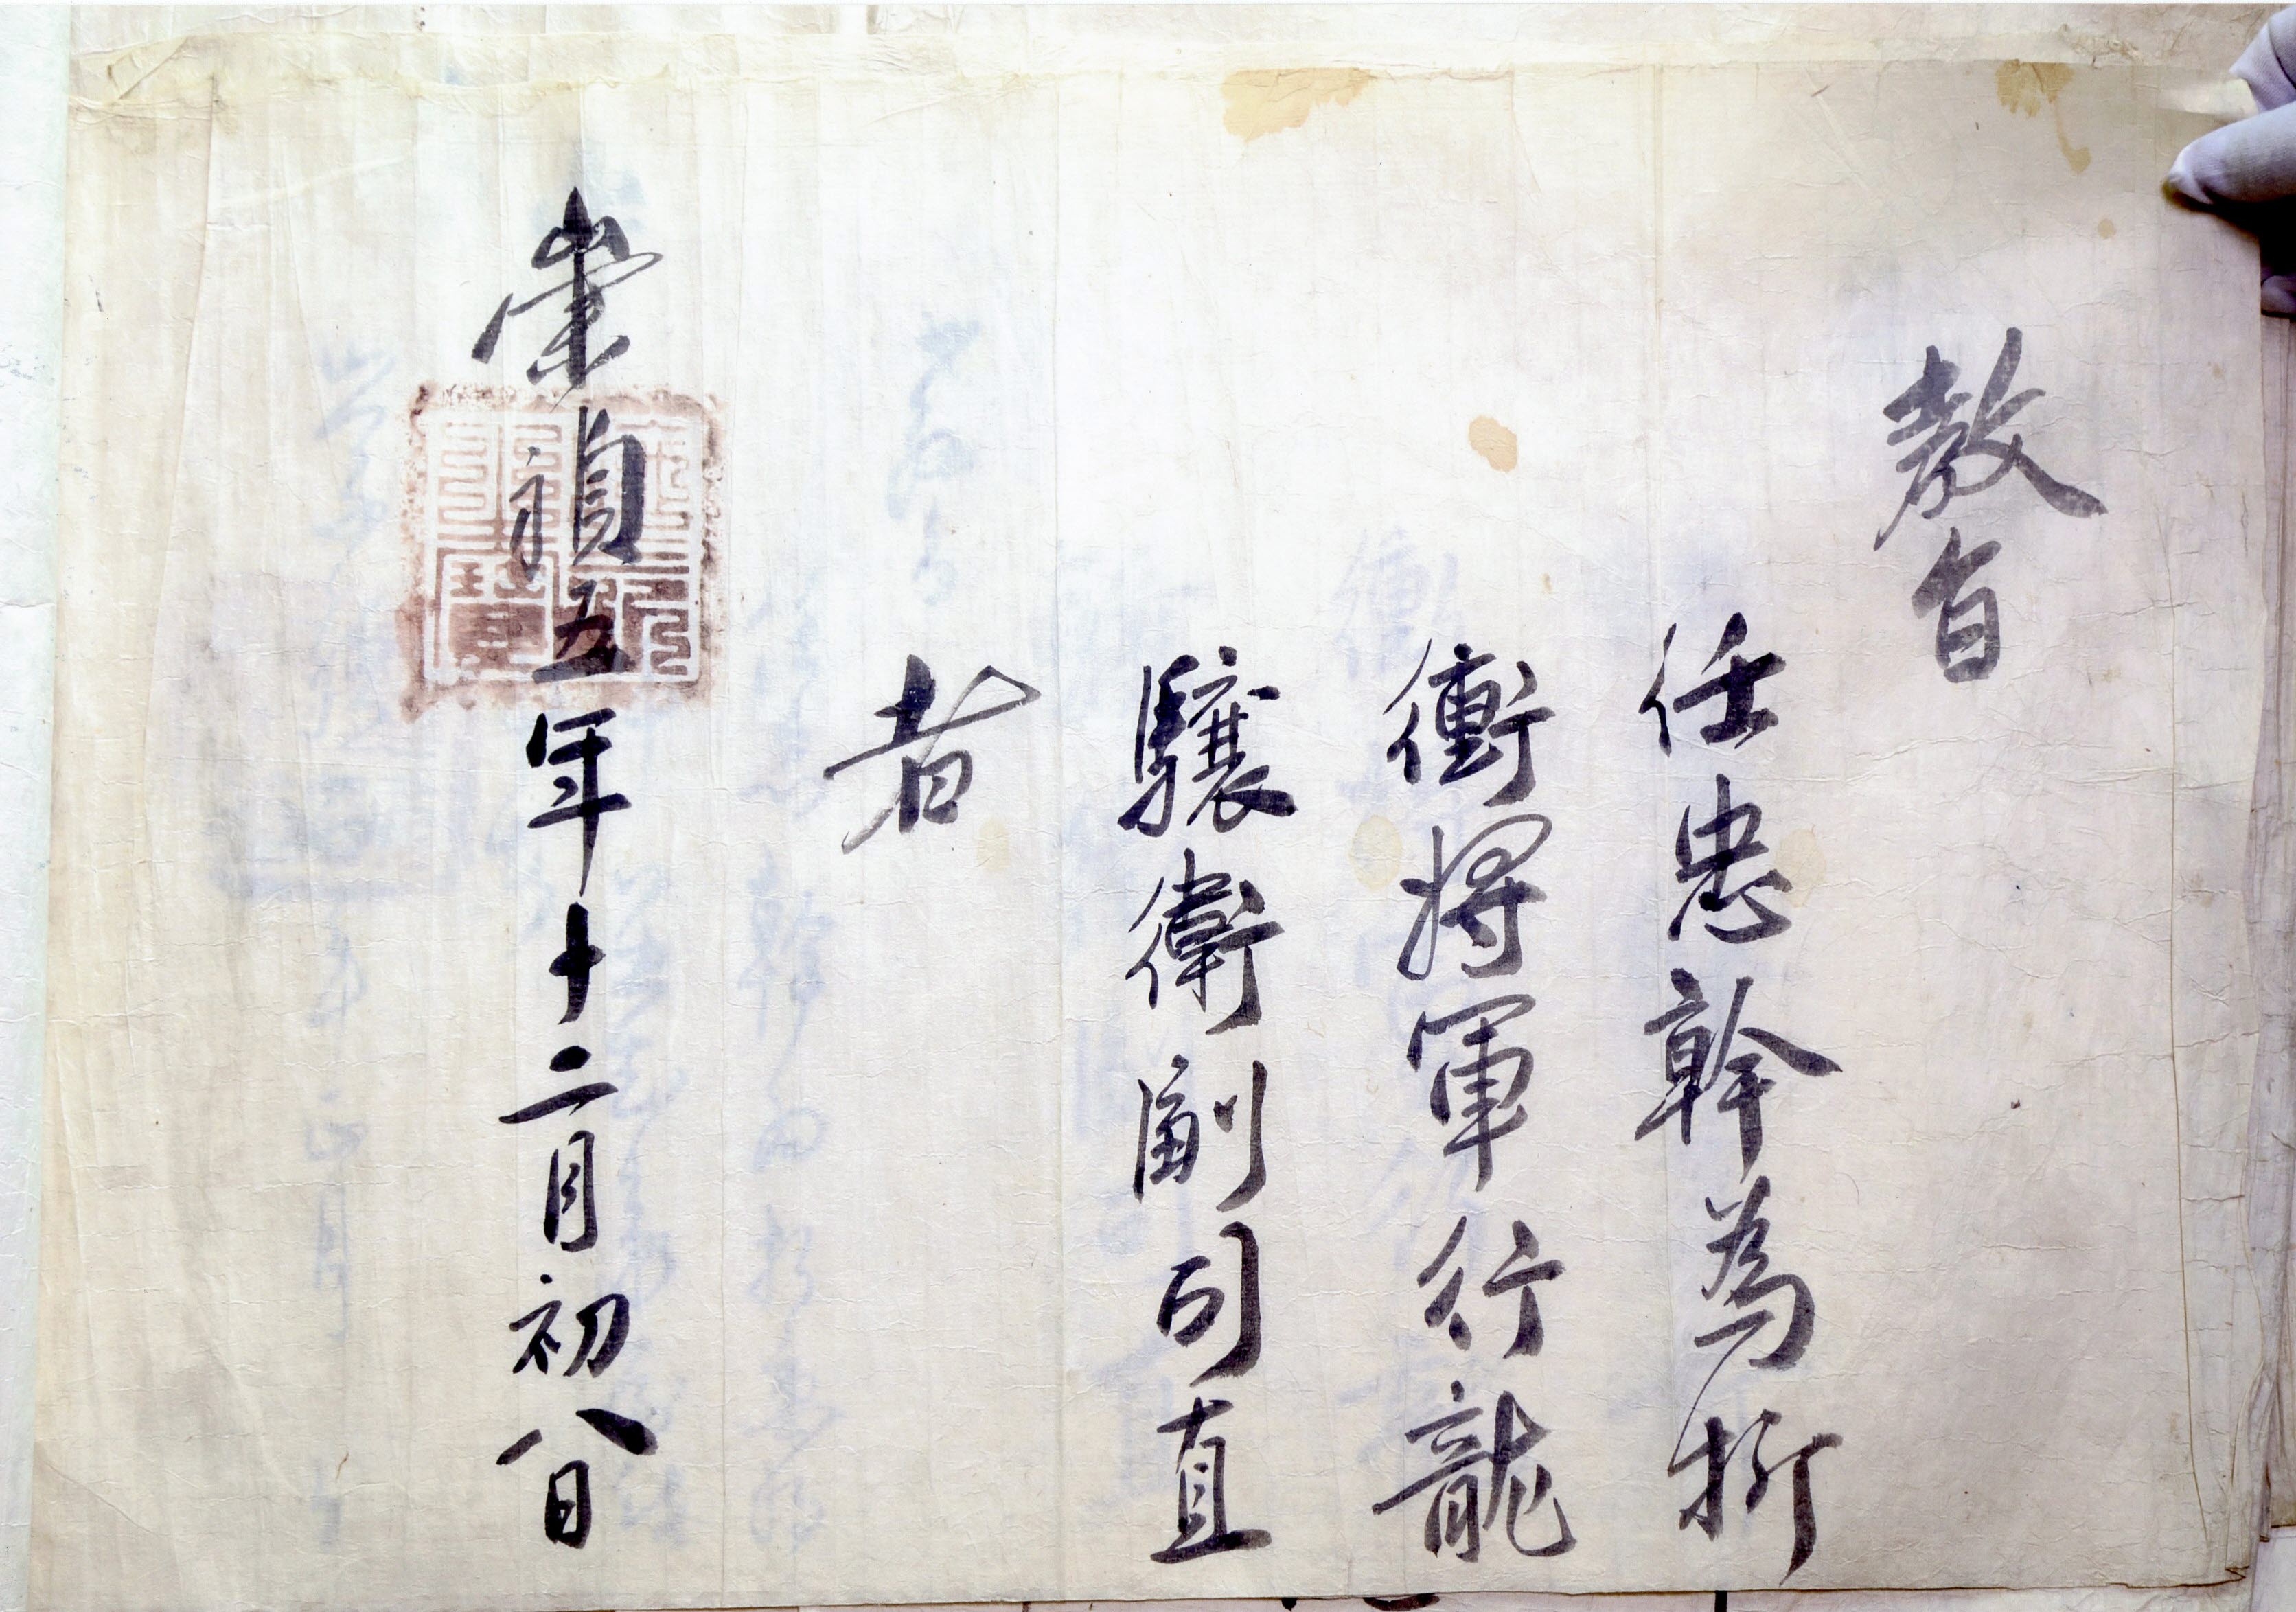 教旨
任忠幹為折
衝將軍行龍
驤衛副司直
者
崇禎五年十二月初八日